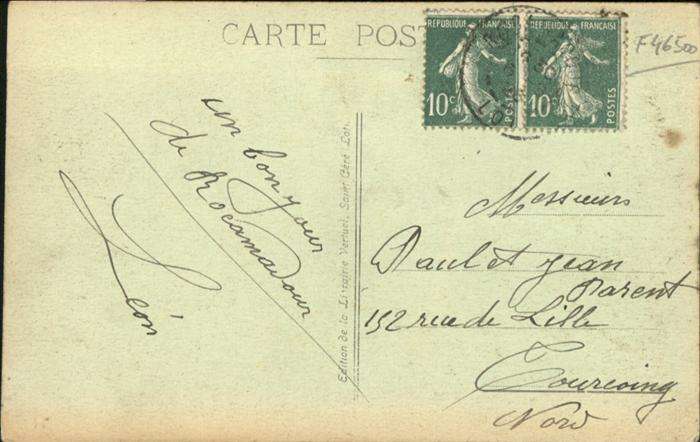 CARTE POST
RÉPUBLIQUE FRANÇAISE
10c POSTES
RÉPUBLIQUE FRANÇAISE
10c POSTES
LOT
F46500
un bonjour
de Rocamadour
Léon
Edition de la Librairie Vertuel, Saint Céré Lot.
Messieurs
Paul et Jean
Parent
152 rue de Lille
Tourcoing
Nord